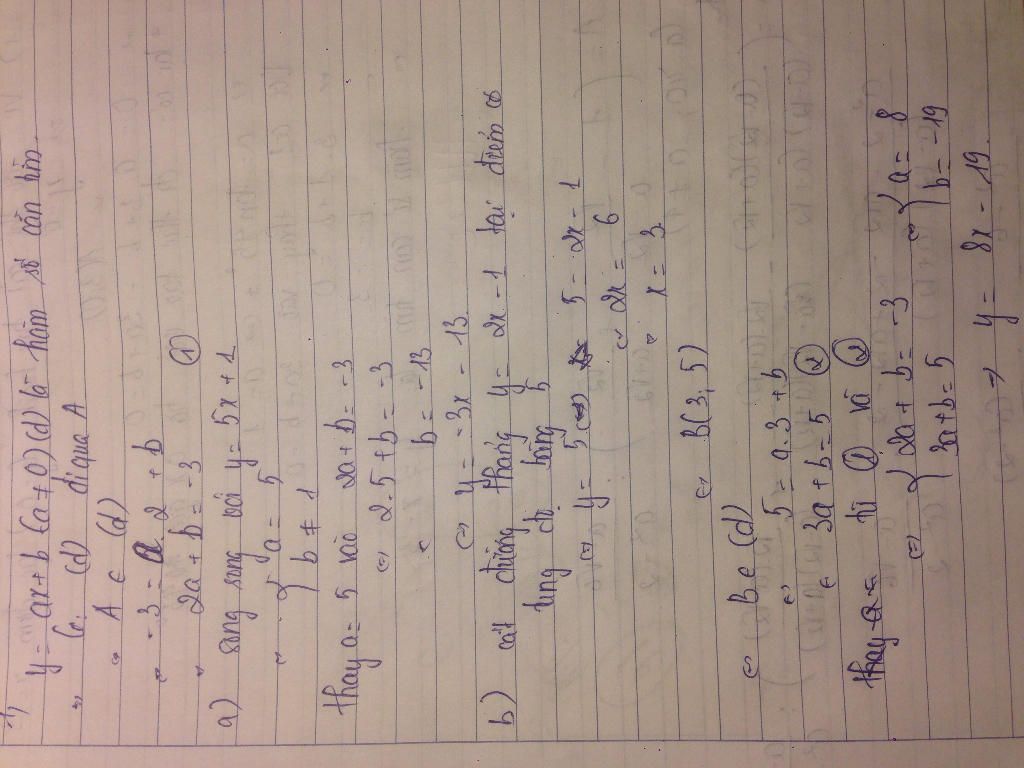 y = ax + b (a ≠ 0) (d) là hàm số cần tìm.
(d) đi qua A
A ∈ (d)
-3 = a.2 + b
2a + b = -3 (1)
a) song song với y = 5x + 1
{ a = 5
b ≠ 1
thay a = 5 vào 2a + b = -3
⇔ 2.5 + b = -3
b = -13
⇔ y = -3x - 13
b) cắt đường thẳng y = 2x - 1 tại điểm có
tung độ bằng 5
⇔ y = 5 ⇔ 5 = 2x - 1
2x = 6
x = 3
⇔ B(3, 5)
⇔ B ∈ (d)
5 = a.3 + b
3a + b = 5 (2)
thay từ (1) và (2)
⇔ { 2a + b = -3 ⇔ { a = 8
3a + b = 5 b = -19
⇒ y = 8x - 19.